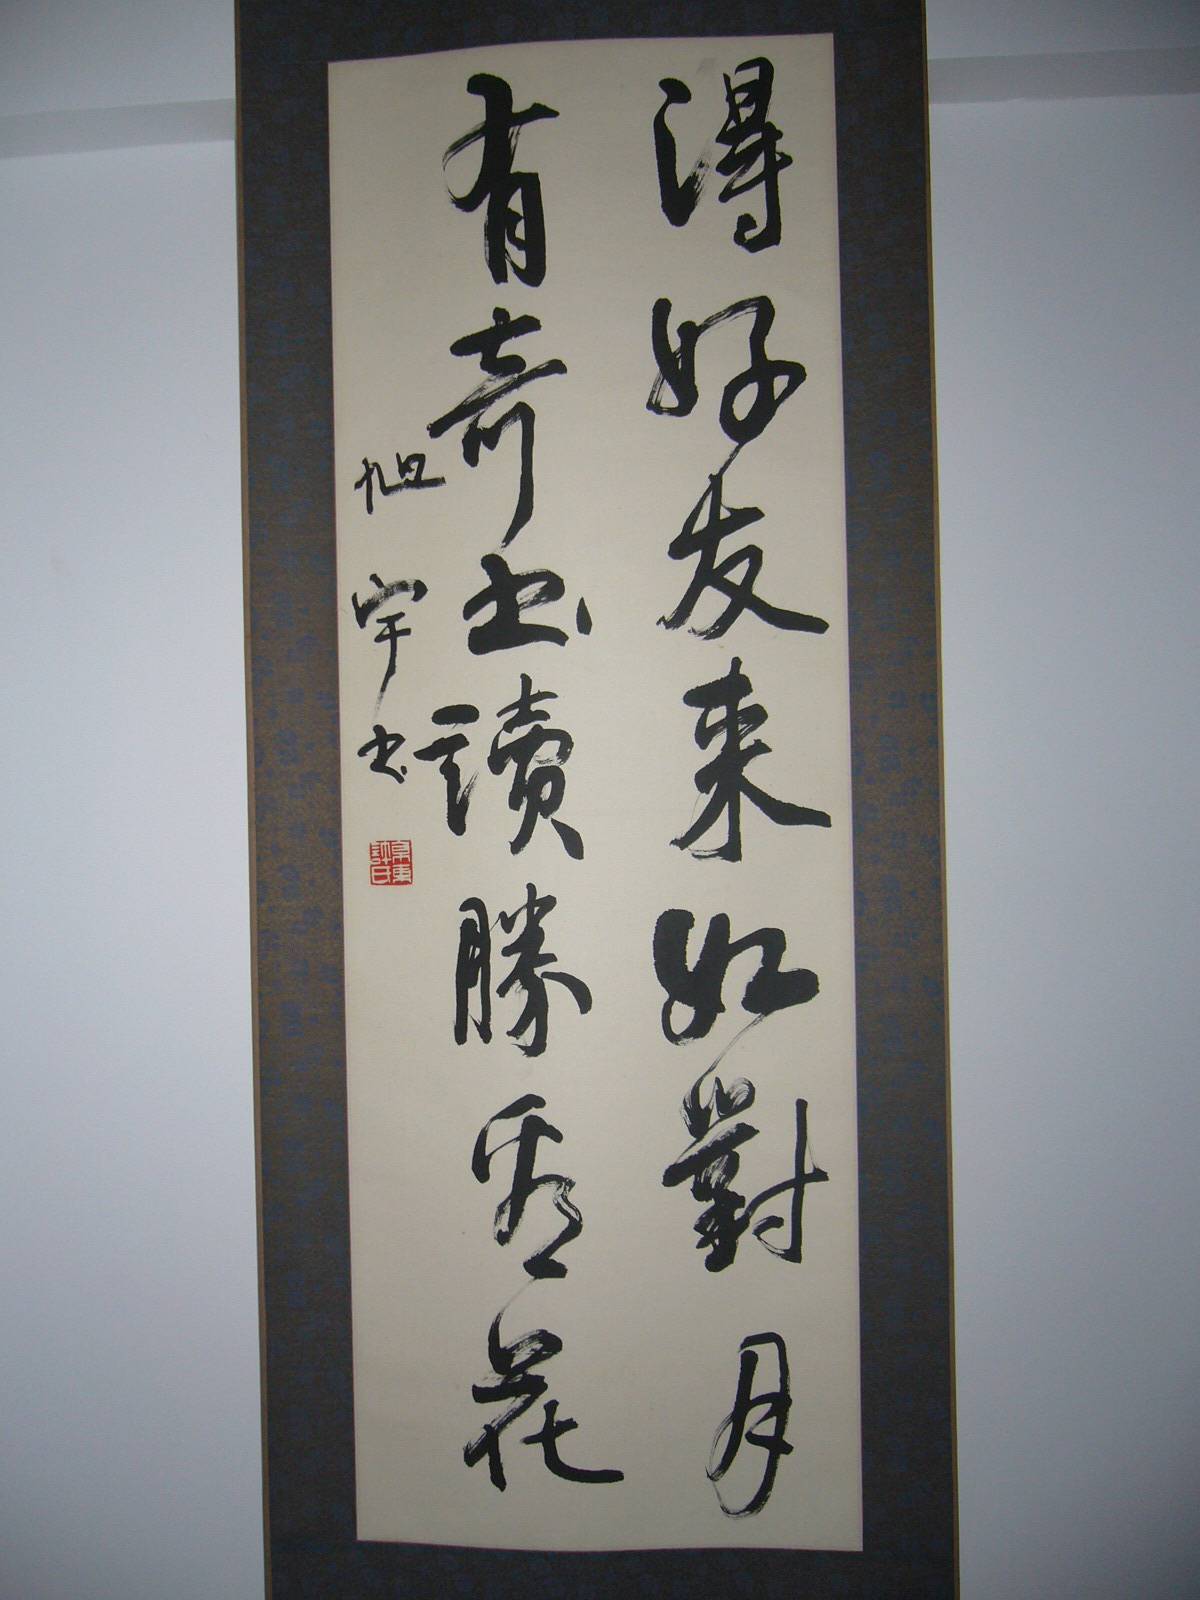 得好友来如對月
有奇书讀勝看花
旭宇书